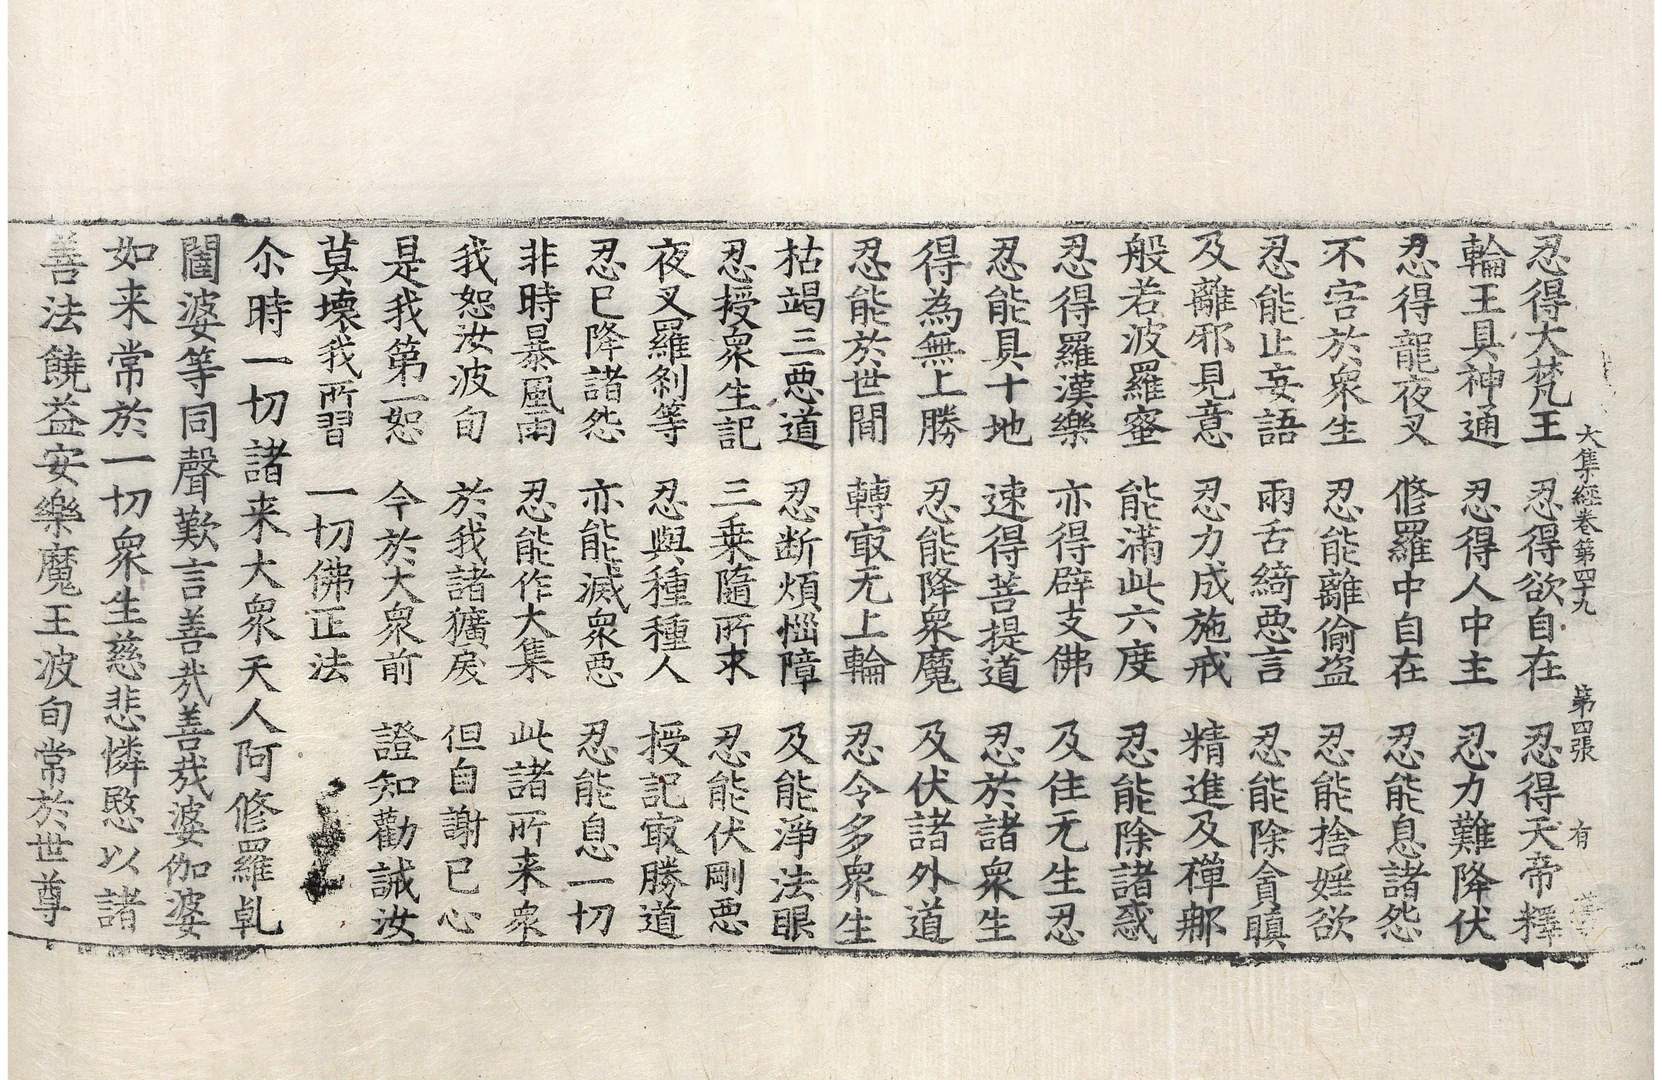 大集經卷第四十九　第四張　有
忍得大梵王　忍得欲自在　忍得天帝釋
輪王具神通　忍得人中主　忍力難降伏
忍得龍夜叉　修羅中自在　忍能息諸怨
不害於衆生　忍能離偷盜　忍能捨婬欲
忍能止妄語　兩舌綺惡言　忍能除貪瞋
及離邪見意　忍力成施戒　精進及禪那
般若波羅蜜　能滿此六度　忍能除諸惑
忍得羅漢樂　亦得辟支佛　及住无生忍
忍能具十地　速得菩提道　忍於諸衆生
得為無上勝　忍能降衆魔　及伏諸外道
忍能於世間　轉㝡无上輪　忍令多衆生
枯竭三惡道　忍断煩惱障　及能淨法眼
忍授衆生記　三乗隨所求　忍能伏剛惡
夜叉羅剎等　忍與種種人　授記㝡勝道
忍已降諸怨　亦能滅衆惡　忍能息一切
非時暴風雨　忍能作大集　此諸所来衆
我恕汝波旬　於我諸獷戾　但自謝已心
是我第一恕　今於大衆前　證知勸誡汝
莫壞我所習　一切佛正法
尒時一切諸来大衆天人阿修羅乹
闥婆等同聲歎言善哉善哉婆伽婆
如来常於一切衆生慈悲憐愍以諸
善法饒益安樂魔王波旬常於世尊